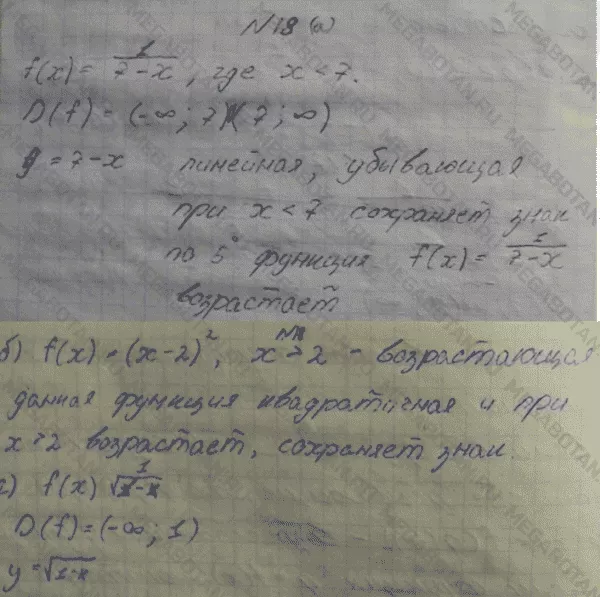 N18 (а)
f(x) = 1/(7-x), где x < 7.
D(f) = (-∞; 7) (7; ∞)
y = 7-x линейная, убывающая
при x < 7 сохраняет знак
по 5° функция f(x) = 1/(7-x)
возрастает
N18
б) f(x) = (x-2)², x > 2 - возрастающая
данная функция квадратичная и при
x > 2 возрастает, сохраняет знак.
f(x) 1/√(1-x)
D(f) = (-∞; 1)
y = √(1-x)
MEGABOTAN.RU